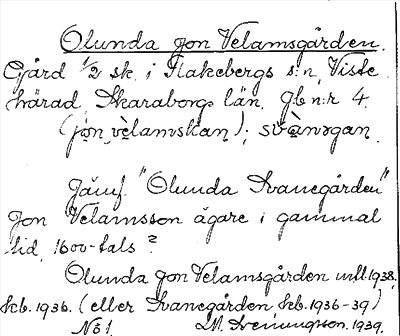 Olunda Jon Velamsgården.
Gård 1/2 sk. i Flakebergs s:n, Viste
härad, Skaraborgs län. Jb n:r 4.
(jon vèlamskan); svànəgan.
Jämf. "Olunda Svanegården"
Jon Velamsson ägare i gammal
tid, 1600-tals?
Olunda Jon Velamsgården 1938.
feb. 1936. (eller Svanegården, feb. 1936-39)
No 1. Hemingson, 1939.